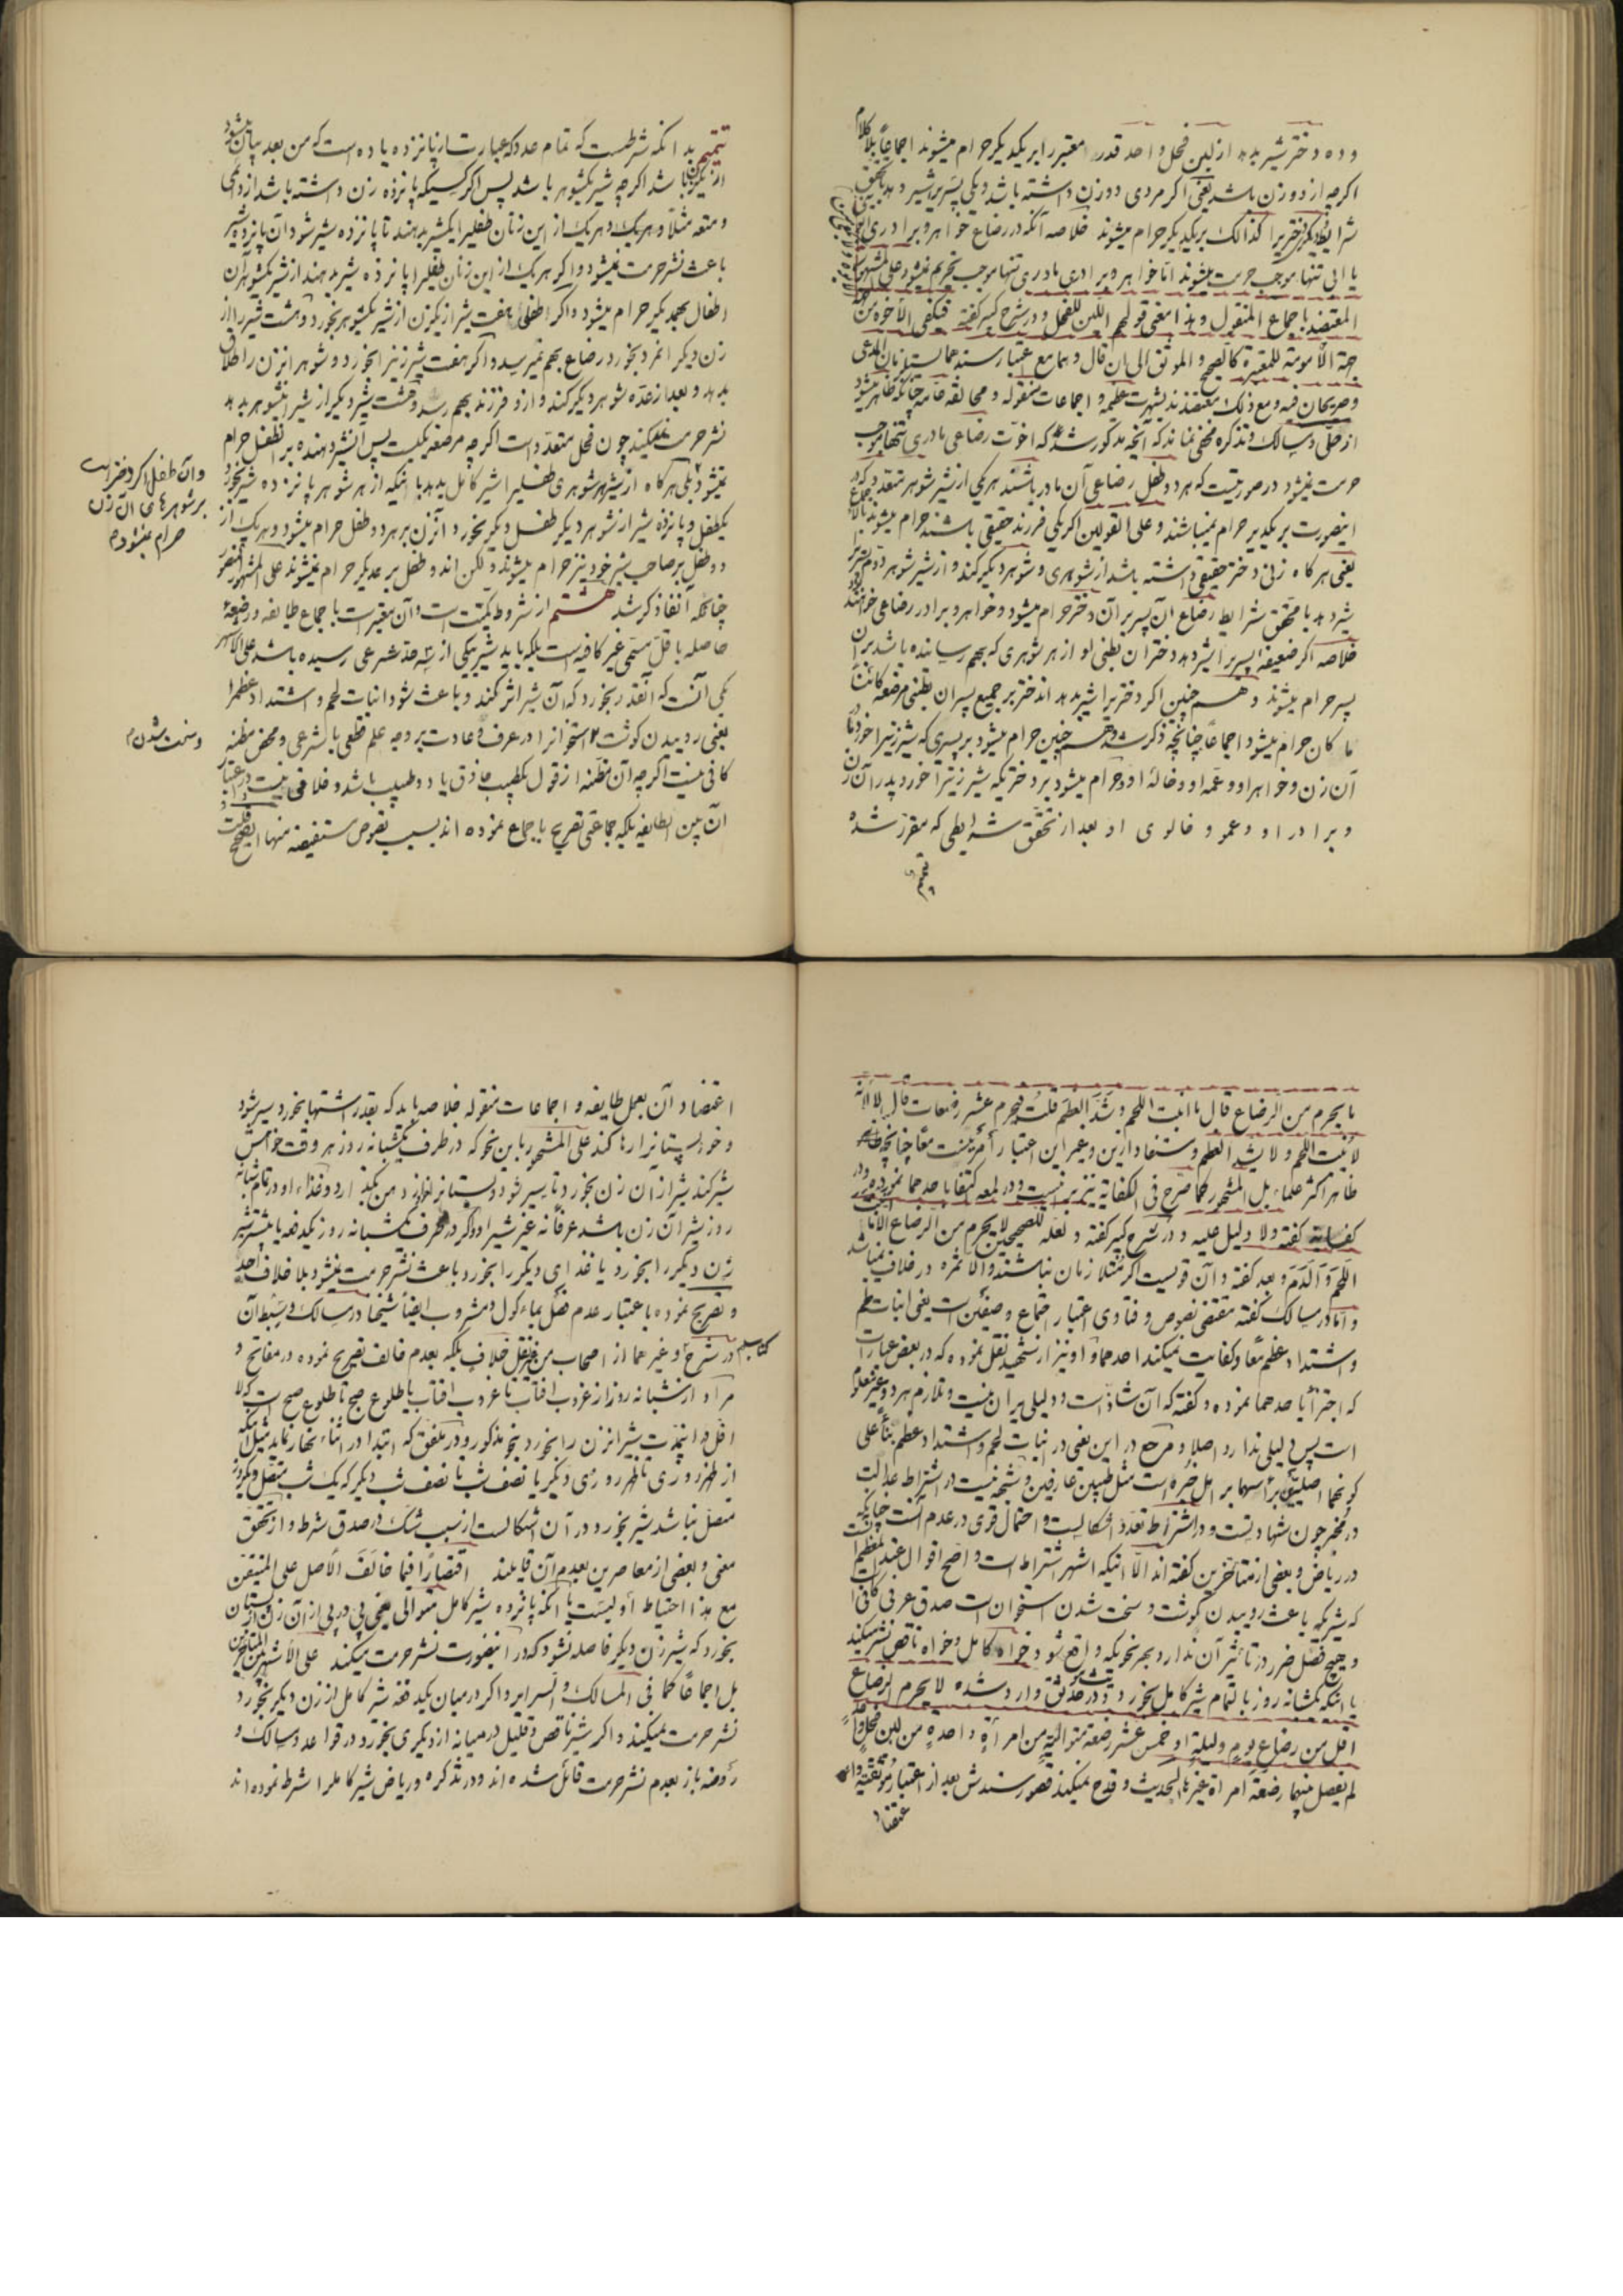 و ده دختر شیر بدهد از لبن فحل واحد قدر معتبر را بر یکدیگر حرام میشوند اجماعاً بلا کلام
اگرچه از دو زن باشد یعنی اگر مردی دو زن داشته باشد و یکی پسریرا شیر دهد بتحقق
شرایط و دیگر دختریرا کذالک بر یکدیگر حرام میشوند خلاصه آنکه در رضاع خواهر و برادری
یا ابی تنها موجب حرمت میشوند اما خواهر و برادری مادری تنها موجب تحریم نمیشود علی المشهور
المعتضد باجماع المنقول و هذا معنی قولهم اللبن للفحل و در شرح کبیر گفته فیکفی الأخوة من
جهة الأمومة للمعتبرة کالصحیح و الموثق الی ان قال و هما مع اعتبار سندهما
و صریحان فیه و مع ذلک معتضد بشهرت عظیمه و اجماعات منقوله و مخالفه عامه چنانکه ظاهر میشود
از حلّی و مسالک و تذکره مخفی نماند که آنچه مذکور شد که اخوّت رضاعی مادری تنها موجب
حرمت نمیشود در صورتیست که هر دو طفل رضاعی آن مادر باشند هر یکی از شیر شوهر متعدد که در
اینصورت بر یکدیگر حرام نمیباشند و علی القولین اگر یکی فرزند حقیقی باشند حرام میشوند
یعنی هرگاه زنی دختر حقیقی داشته باشد از شوهری و شوهر دیگر کند و از شیر شوهر دوم
شیر دهد با تحقق شرایط رضاع آن پسر بر آن دختر حرام میشود و خواهر و برادر رضاعی
خلاصه اگر ضعیفه پسریرا شیر دهد دختران بطنی او از هر شوهری که بهم رسانده باشد بر آن
پسر حرام میشوند و همچنین اگر دختریرا شیر بدهد اندختر بر جمیع پسران بطنی مرضعه کائناً
ما کان حرام میشود اجماعاً چنانچه ذکر شد و همچنین حرام میشود بر پسری که شیر زنیرا خورد مادر
آن زن و خواهر او و عمه او و خالهٔ او و حرام میشود بر دختریکه شیر زنیرا خورد پدر آن زن
و برادر او و عمو و خالوی او بعد از تحقق شرایطی که مقرر شده
تتمیم
تتمیم بدانکه شرطست که تمام عدد که عبارتست از پانزده یا ده است که من بعد بیان میشود
از یکزن باشد اگرچه شیر یکشوهر باشد پس اگر کسیکه پانزده زن داشته باشد از دائمی
و متعه مثلا و هر یک و هر یک از این زنان طفلیرا یکشیر بدهند تا پانزده شیر شود آن پانزده شیر
باعث نشر حرمت نمیشود و اگر هر یک از این زنان طفلیرا پانزده شیر بدهند از شیر یکشوهر آن
اطفال بهمدیگر حرام میشود و اگر طفلی هفت شیر از یکزن از شیر یکشوهر بخورد و هشت شیر را از
زن دیگر انمرد بخورد رضاع بهم نمیرسد و اگر هفت شیر زنیرا بخورد و شوهر انزن را طلاق
بدهد و بعد از عدّه شوهر دیگر کند و از او فرزند بهم رسد و هشت شیر دیگر از شیر انشوهر بدهد
نشر حرمت نمیکند چون فحل متعدّد است اگرچه مرضعه یکیست پس انشیر دهنده بر انطفل حرام
نمیشود بلی هرگاه از شیر هر شوهری طفلیرا شیر کامل بدهد باینکه از هر شوهر پانزده شیر بخورد
یکطفل و پانزده شیر از شوهر دیگر طفل دیگر بخورد آنزن بر هر دو طفل حرام میشود و هر یک از
دو طفل بر صاحب شیر خود نیز حرام میشوند و لکن اندو طفل بر همدیگر حرام نمیشوند علی المشهور
چنانکه آنفا ذکر شد هشتم از شروط کمیّت است و آن معتبر است باجماع طایفه
حاصله باقلّ مسمّی غیر کافیه است بلکه باید شیر بیکی از سه حدّ شرعی رسیده باشد علی الاشهر
یکی آنست که آنقدر بخورد که آن شیر اثر کند و باعث شود انبات لحم و اشتداد عظم را
یعنی روییدن گوشت و استخوانرا در عرف و عادت بر وجه علم قطعی یا شرعی و محض مظنه
کافی نیست اگرچه آن مظنه از قول یکطبیب حاذق یا دو طبیب باشد و خلافی نیست در اعتبار
آن بین الطایفه بلکه جماعتی تصریح باجماع نموده اند بسبب نصوص مستفیضه منها الصحیح قلت
و آن طفل اگر دختر است
بر شوهرهای آن زن
حرام میشود م
و سخت شدن م
ما یحرم من الرضاع قال ما انبت اللحم و شدّ العظم قلت فیحرم عشر رضعات قال لا لأنه
لا ینبت اللحم و لا یشد العظم و مستفاد از این و غیر این اعتبار أمرینست معاً چنانچه
ظاهر اکثر علماء بل المشهور کما صرّح فی الکفایة نیز بر اینست و در لمعه اکتفا باحدهما نموده و در
کفایة گفته و لا دلیل علیه و در شرح کبیر گفته و لعله للصحیحین لا یحرم من الرضاع الا ما انبت
اللحم و الدّم و بعد گفته و آن قویست اگر متلازمان نباشند و الا ثمره در خلاف نمیباشد
و اما در مسالک گفته مقتضی نصوص و فتاوی اعتبار اجتماع وصفین است یعنی انبات لحم
و اشتداد عظم معاً و کفایت نمیکند احدهما و او نیز از شهید نقل نموده که در بعض عبارات
که اجتزأ باحدهما نموده و گفته که آن شاذ است و دلیلی بر ان نیست و تلازم هر دو غیر معلوم
است پس دلیلی ندارد اصلا و مرجع در این یعنی در انبات لحم و اشتداد عظم بناً علی
کونهما اصلیّین برأسهما بر اهل خبره است مثل طبیبین عارفین و شبهه نیست در اشتراط عدالت
در مخبر چون شهادتست و در اشتراط تعدّد اشکالیست و احتمال قوی در عدم آنست چنانکه
در ریاض و بعضی از متأخرین گفته اند الّا اینکه اشهر اشتراط است و اصحّ اقوال عند المعظم
که شیریکه باعث روییدن گوشت و سخت شدن استخوان است صدق عرفی کافی است
و هیچ فصل ضرر در تأثیر آن ندارد بهر نحویکه واقع شود خواه کامل و خواه ناقص نشر میکند
یا آنکه یکشبانه روز بالتمام شیر کامل بخورد و در موثق وارد شده لا یحرم الرضاع
اقل من رضاع یوم و لیلة او خمس عشر رضعة متوالیة من امرأة واحدة من لبن فحل واحد
لم یفصل بینها رضعة امرأة غیرها الحدیث و قدح نمیکند قصور سندش بعد از اعتبار موثقیة
اعتضاد
اعتضاد آن بعمل طایفه و اجماعات منقوله خلاصه باید که بقدر اشتها بخورد سیر شود
و خود پستانرا رها کند علی المشهور باین نحو که در ظرف یکشبانه روز هر وقت خواهش
شیر کند شیر از آن زن بخورد تا سیر شود و پستانرا از دهن بگذارد و غذاء او در تمام شبانه
روز شیر آن زن باشد عرفاً نه غیر شیر او و اگر در ظرف یکشبانه روز یکدفعه یا بیشتر شیر
زن دیگر را بخورد یا غذای دیگر را بخورد باعث نشر حرمت نمیشود بلا خلاف اجده
و تصریح نموده باعتبار عدم فصل بماء کول و مشروب ایضاً شیخنا در مسالک و سبط آن
در شرح و غیر هما از اصحاب من غیر نقل خلاف بلکه بعدم خالف تصریح نموده در مفاتیح و
مراد از شبانه روز از غروب افتاب تا غروب افتاب یا طلوع صبح تا طلوع صبح است که لا
اقل در اینمدت شیر انزن را بخورد بنحو مذکور و در ملفق که ابتدا در اثناء نهار نماید مثل اینکه
از ظهر روزی تا ظهر روزی دیگر یا نصف شب تا نصف شب دیگر که یک شب متصل و یکروز
متصل نباشد شیر بخورد در آن اشکالیست از سبب شک در صدق شرط و از تحقق
معنی و بعضی از معاصرین بعدم آن قایلند اقتصاراً فیما خالف الأصل علی المتیقن
مع هذا احتیاط اولیست یا آنکه پانزده شیر کامل متوالی یعنی پی در پی از آن زن از پستان
بخورد که شیر زن دیگر فاصله نشود که در اینصورت نشر حرمت میکند علی الأشهر بین المتأخرین
بل اجماعاً کما فی المسالک و السرایر و اگر در میان یکدفعه شیر کامل از زن دیگر بخورد
نشر حرمت نمیکند و اگر شیر ناقص و قلیل در میانه از دیگری بخورد در قواعد و مسالک و
روضه باز بعدم نشر حرمت قائل شده اند و در تذکره و ریاض شیر کامل را شرط نموده اند